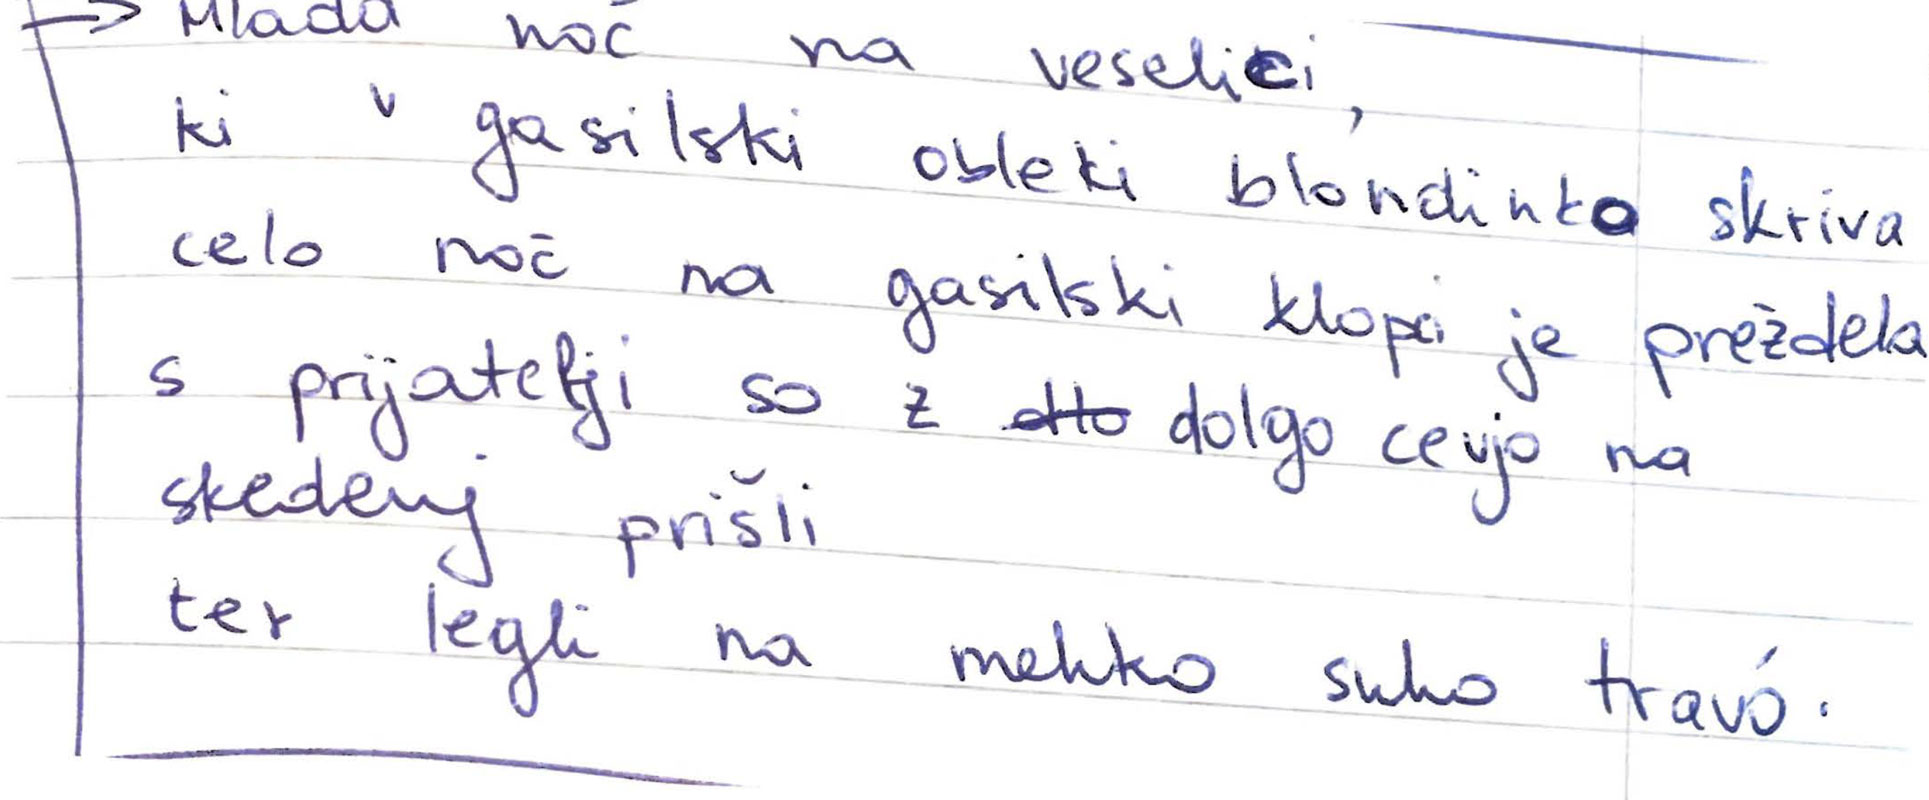 → Mlada noč na veselici,
ki v gasilski obleki blondinko skriva
celo noč na gasilski klopi je preždela
s prijatelji so z dolgo cevjo na
skedenj prišli
ter legli na mehko suho travó.